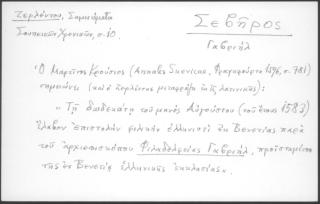 Ζερλέντου, Σημειώματα
Σουπιανῶν Χρονικῶν, σ. 10.
Σεβῆρος
Γαβριήλ
Ὁ Μαρτῖνος Κρούσιος (Annales Suevicae, Φραγκφούρτο 1596, σ. 781)
σημειώνει (καὶ ὁ Ζερλέντης μεταφράζει ἐκ τῆς λατινικῆς):
" Τῇ δωδεκάτῃ τοῦ μηνὸς Αὐγούστου (τοῦ ἔτους 1583)
ἔλαβον ἐπιστολὴν φιλικὴν ἑλληνιστὶ ἐκ Βενετίας παρὰ
τοῦ ἀρχιεπισκόπου Φιλαδελφείας Γαβριήλ, προϊσταμένου
τῆς ἐν Βενετίᾳ ἑλληνικῆς ἐκκλησίας».